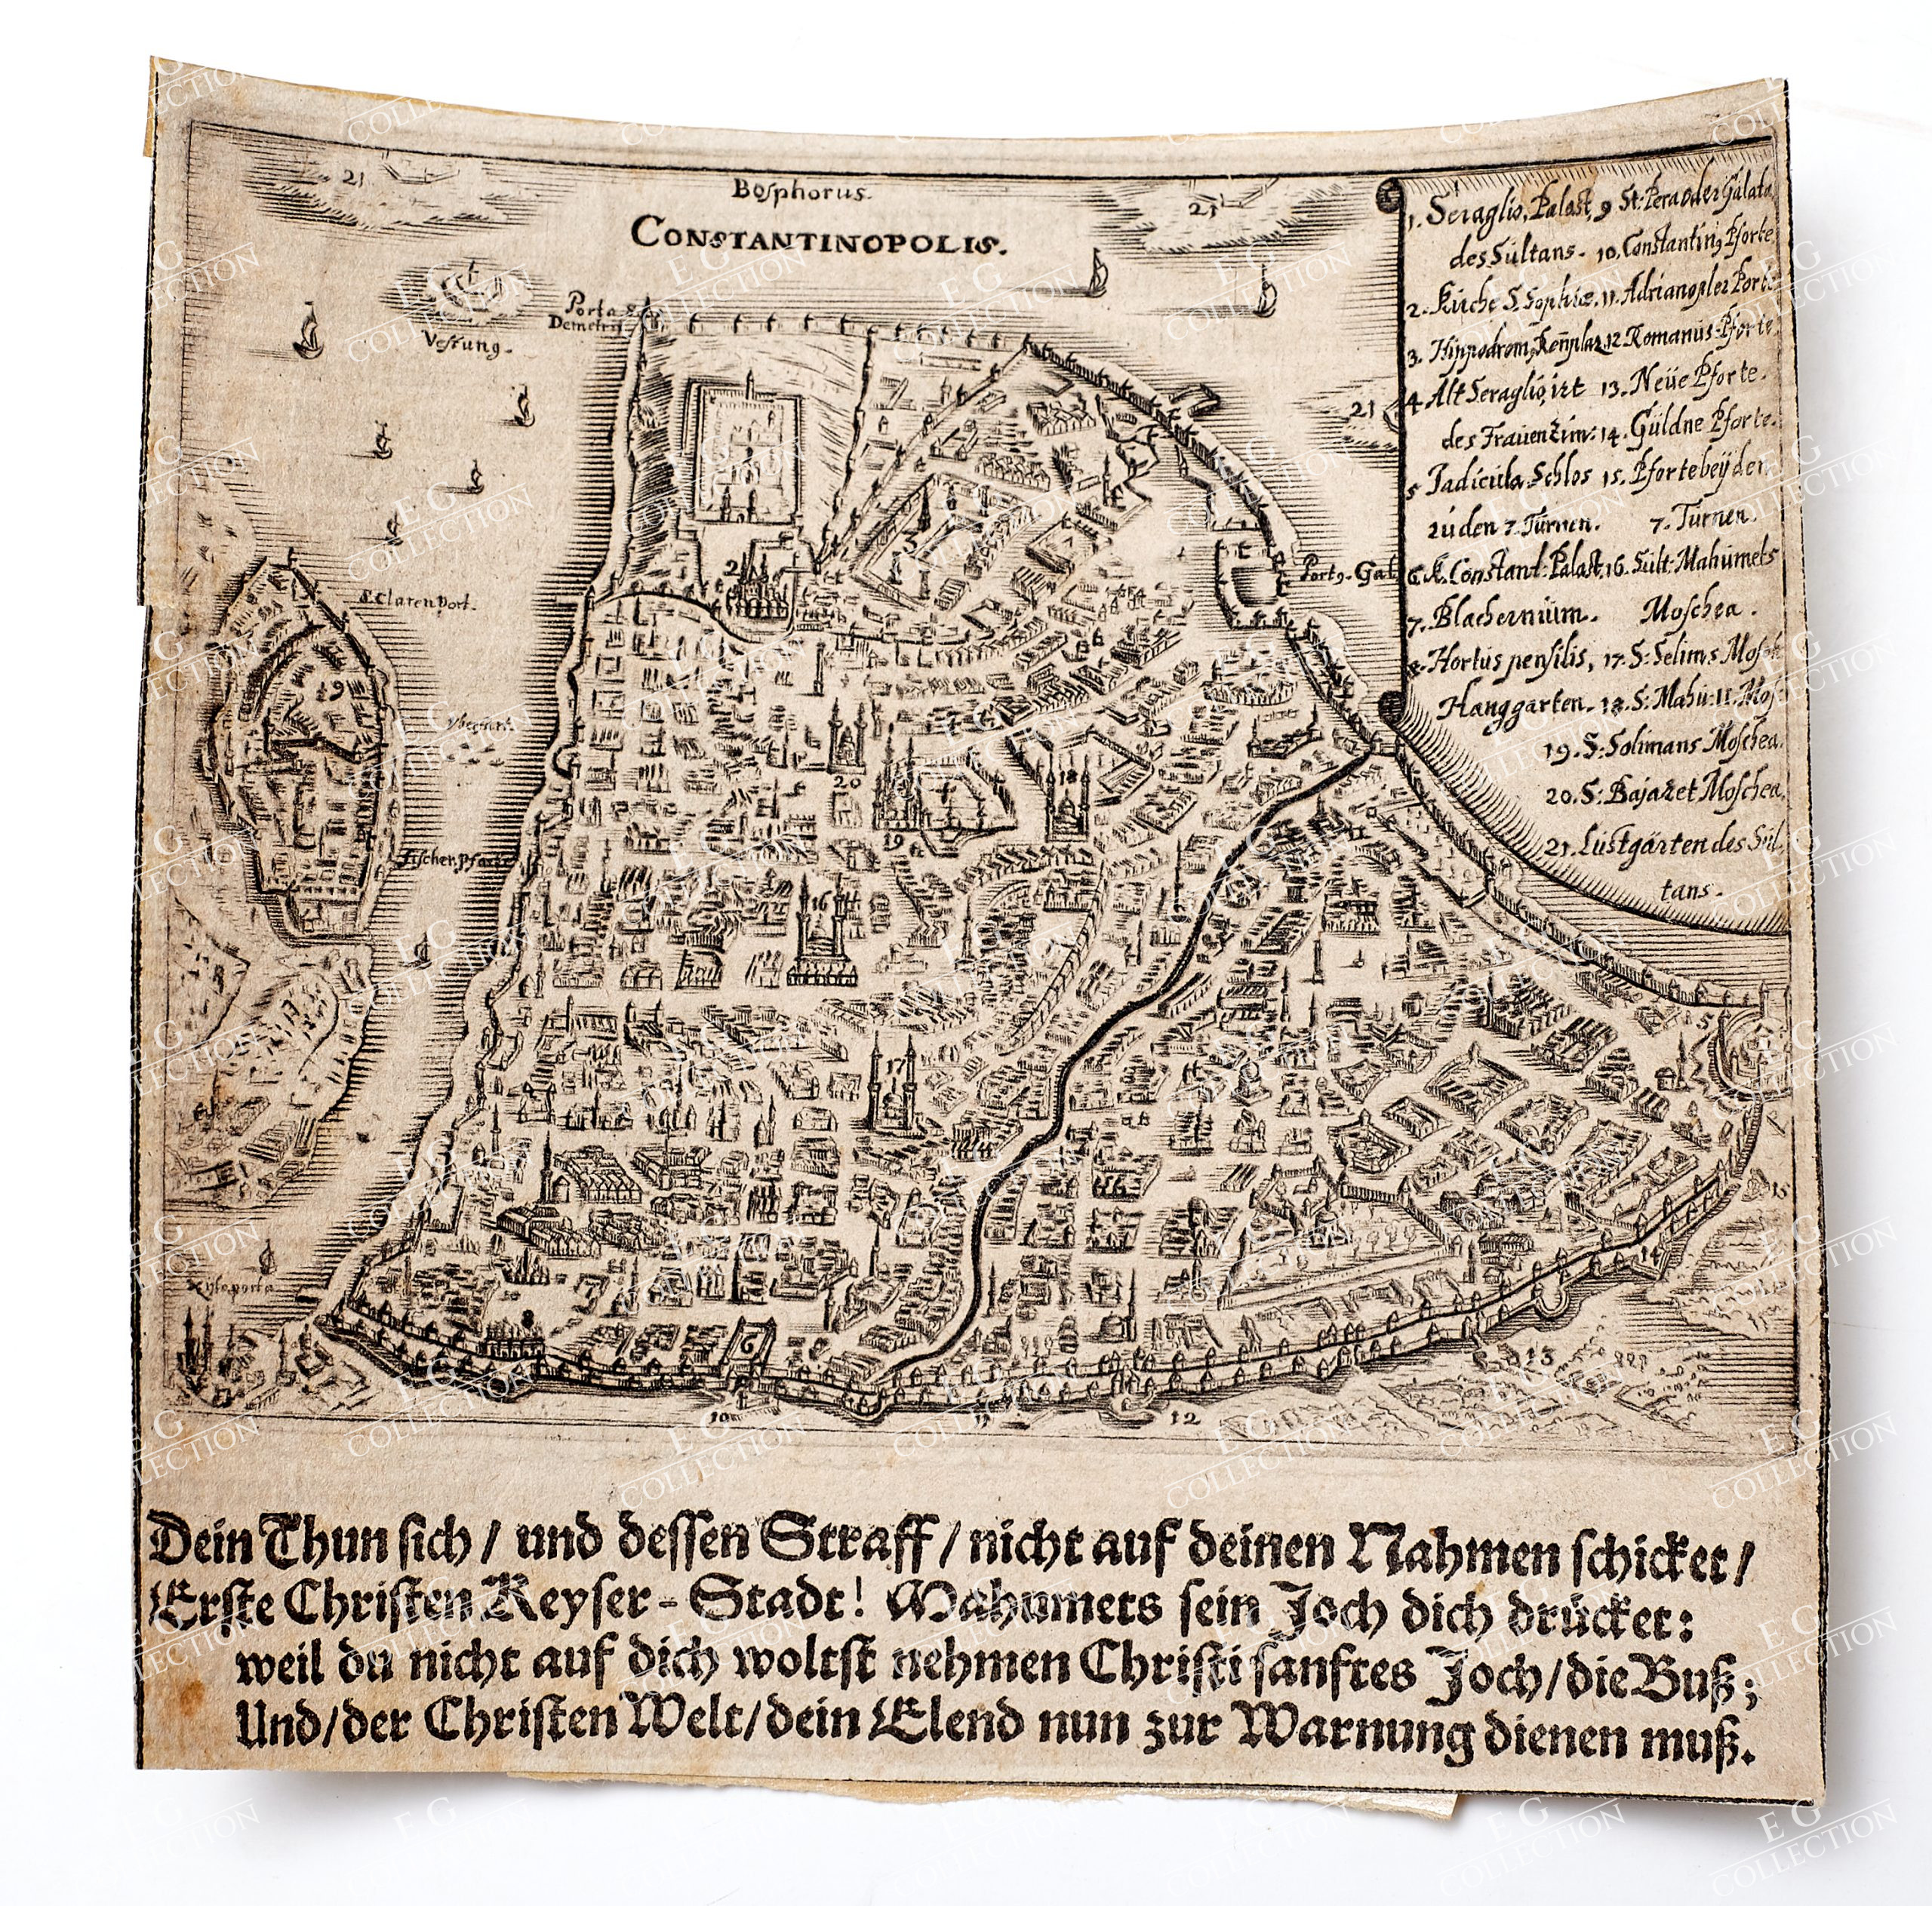 21
Bosphorus.
21
CONSTANTINOPOLIS.
Porta S.
Demetrij
Vestung.
21
S. Claren Port.
Port9. Gal
Fischer Pforte
Xyloporta
1. Seraglio, Palast
des Sultans.
2. Kirche S. Sophiæ.
3. Hippodrom, Reñplaz
4. Alt Seraglio, izt
des Frauenzim:
5. Jadicula. Schlos
zu den 7. Turnen.
6. K. Constant: Palast
7. Blachernüm.
8. Hortus pensilis,
Hanggarten.
9 St: Pera oder Galata
10. Constantin9 Pforte
11. Adrianopler Porte
12 Romanus Pforte.
13. Neüe Pforte.
14. Güldne Pforte.
15. Pforte beÿ den
7. Turnen.
16. Sült: Mahümets
Moschea.
17. S: Selims Mosch
18. S: Mahü: II. Mos:
19. S: Solimans Moschea.
20. S: Bajazet Moschea.
21. Lüstgärten des Sül,
tans.
2
3
9
20
18
19
16
17
5
15
14
7
8
6
13
10
11
12
Dein Thun sich / und dessen Straff / nicht auf deinen Nahmen schicket /
Erste Christen Keyser-Stadt! Mahumets sein Joch dich drücket:
weil du nicht auf dich woltst nehmen Christi sanftes Joch / die Buß;
Und / der Christen Welt / dein Elend nun zur Warnung dienen muß.
E G
COLLECTION